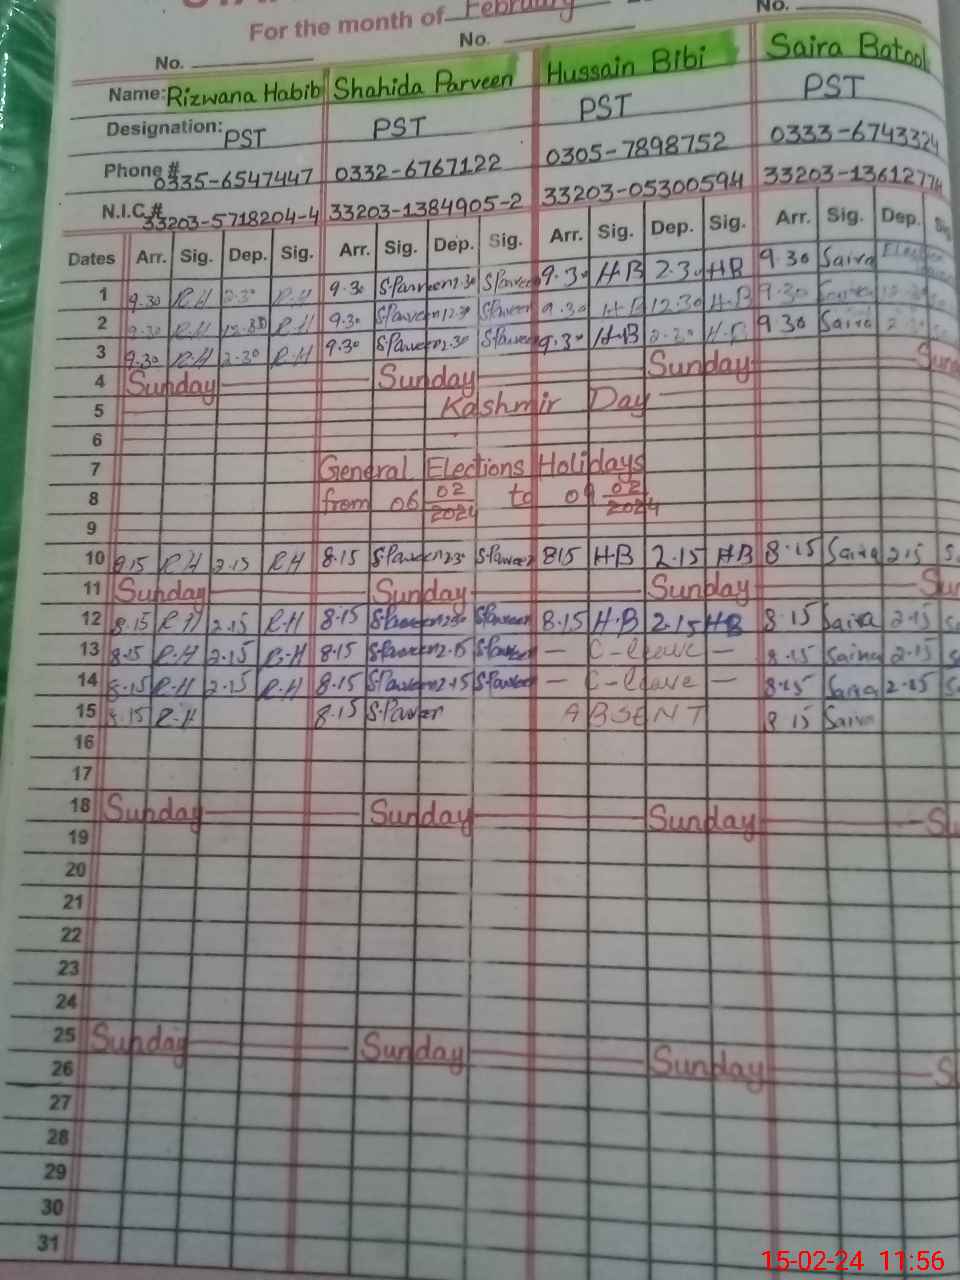 For the month of February
No. No. No.
Name: Rizwana Habib Shahida Parveen Hussain Bibi Saira Batool
Designation: PST PST PST PST
Phone # 0335-6547447 0332-6767122 0305-7898752 0333-6743324
N.I.C.# 33203-5718204-4 33203-1384905-2 33203-05300594 33203-1361277
Dates Arr. Sig. Dep. Sig. Arr. Sig. Dep. Sig. Arr. Sig. Dep. Sig. Arr. Sig. Dep. Sig.
1 9.30 R.H 2.30 R.H 9.30 S.Parveen 2.30 S.Parveen 9.30 H-B 2.30 H-B 9.30 Saira
2 9.30 R.H 12.30 R.H 9.30 S.Parveen 12.30 S.Parveen 9.30 H-B 12.30 H-B 9.30
3 9.30 R-H 2.30 R-H 9.30 S.Parveen 2.30 S.Parveen 9.30 H-B 2.30 H-B 9.30 Saira
4 Sunday Sunday Sunday Sund
5 Kashmir Day
6
7 General Elections Holidays
8 from 06 02/2024 to 09 02/2024
9
10 8.15 R.H 2.15 R.H 8.15 S.Parveen S.Parveen 815 H-B 2.15 H-B 8.15 Saira 2.15 S
11 Sunday Sunday Sunday Sun
12 8.15 R.H 2.15 R.H 8.15 S.Parveen S.Parveen 8.15 H-B 2.15 H-B 8.15 Saira 2.15
13 8.15 R.H 2.15 R-H 8.15 S.Parveen 2.15 S.Parveen — C-leave — 8.15 Saira 2.15
14 8.15 R-H 2.15 R.H 8.15 S.Parveen 2.15 S.Parveen — C-leave — 8.15 Saira 2.15
15 8.15 R-H 8.15 S.Parveen ABSENT 8 15 Saira
16
17
18 Sunday Sunday Sunday Su
19
20
21
22
23
24
25 Sunday Sunday Sunday S
26
27
28
29
30
31
15-02-24 11:56